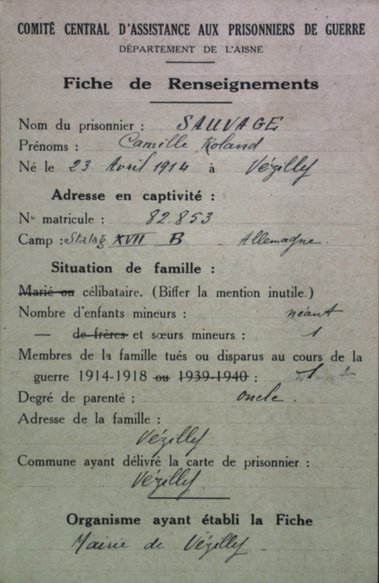 COMITÉ CENTRAL D'ASSISTANCE AUX PRISONNIERS DE GUERRE
DÉPARTEMENT DE L'AISNE
Fiche de Renseignements
Nom du prisonnier : SAUVAGE
Prénoms : Camille Roland
Né le 23 Avril 1914 à Vézilly
Adresse en captivité :
No matricule : 82.853
Camp : Stalag XVII B Allemagne
Situation de famille :
Marié ou célibataire. (Biffer la mention inutile.)
Nombre d'enfants mineurs : néant
— de frères et sœurs mineurs : 1
Membres de la famille tués ou disparus au cours de la
guerre 1914-1918 ou 1939-1940 : 1
Degré de parenté : oncle.
Adresse de la famille :
Vézilly.
Commune ayant délivré la carte de prisonnier :
Vézilly.
Organisme ayant établi la Fiche
Mairie de Vézilly.